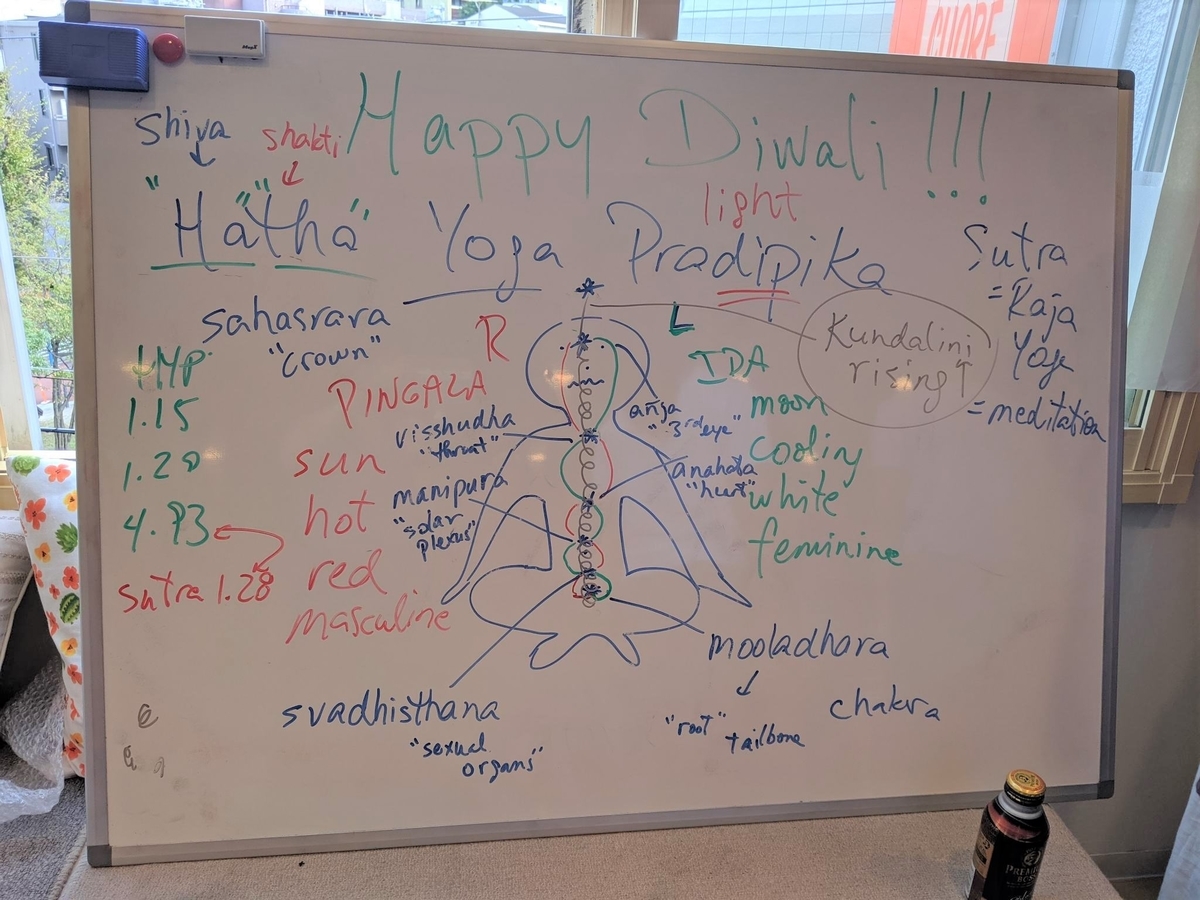 CUORE
MagX
Happy Diwali !!!
Shiva
shakti
light
"Ha" "tha" Yoga Pradipika
Sutra
= Raja
Yoga
= meditation
sahasrara
"crown"
R
L
Kundalini
rising ↑
HYP
1.15
1.20
4.93
sutra 1.28
PINGALA
sun
hot
red
masculine
IDA
moon
cooling
white
feminine
visshudha
"throat"
manipura
"solar
plexus"
"3rd eye"
anahata
"heart"
mooladhara
"root" tailbone
chakra
svadhisthana
"sexual
organs"
PREMIUM
BOSS